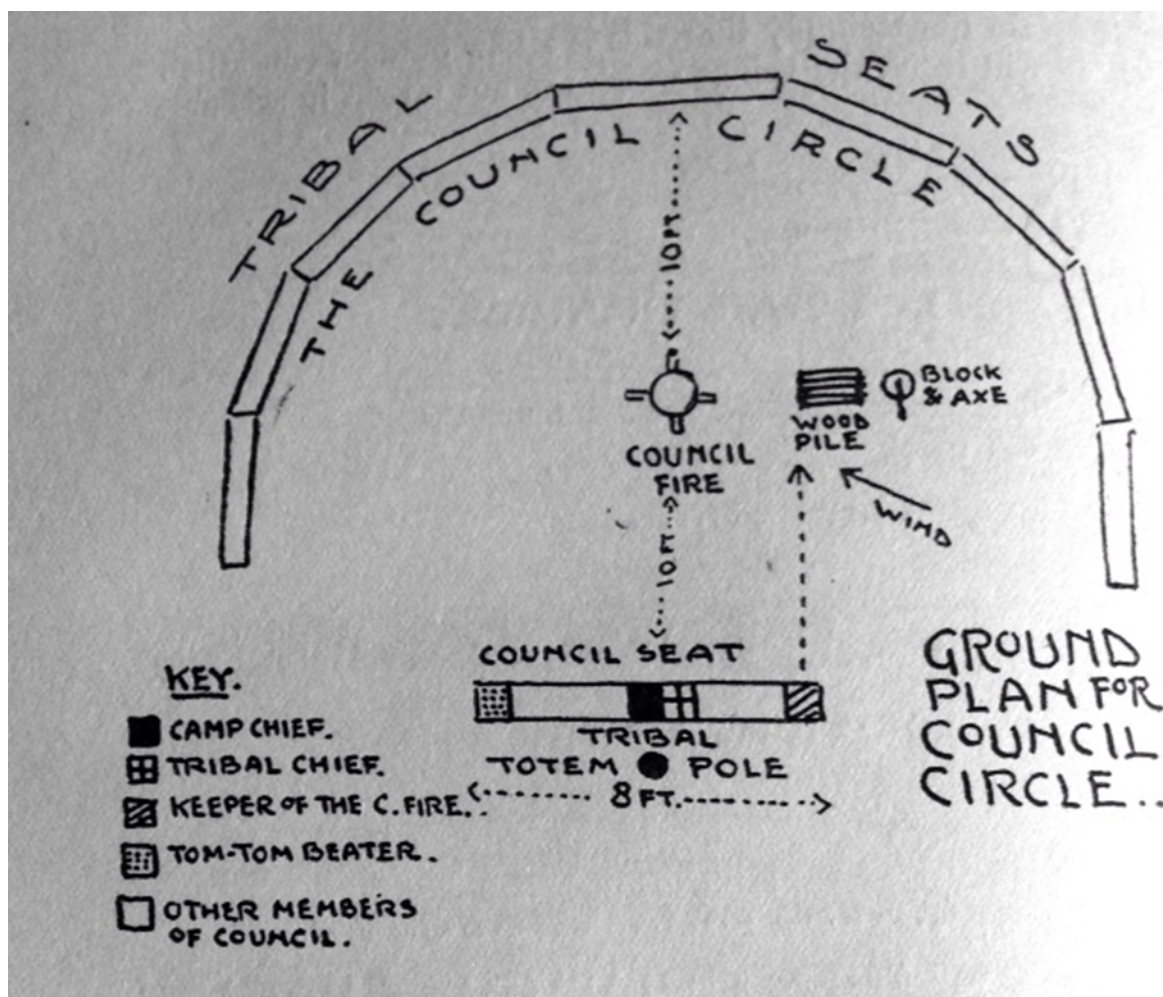 TRIBAL SEATS
THE COUNCIL CIRCLE
10FT
BLOCK
& AXE
WOOD
PILE
COUNCIL
FIRE
WIND
10FT
COUNCIL SEAT
TRIBAL
TOTEM POLE
8 FT.
KEY.
CAMP CHIEF.
TRIBAL CHIEF.
KEEPER OF THE C. FIRE.
TOM-TOM BEATER.
OTHER MEMBERS
OF COUNCIL.
GROUND
PLAN FOR
COUNCIL
CIRCLE...